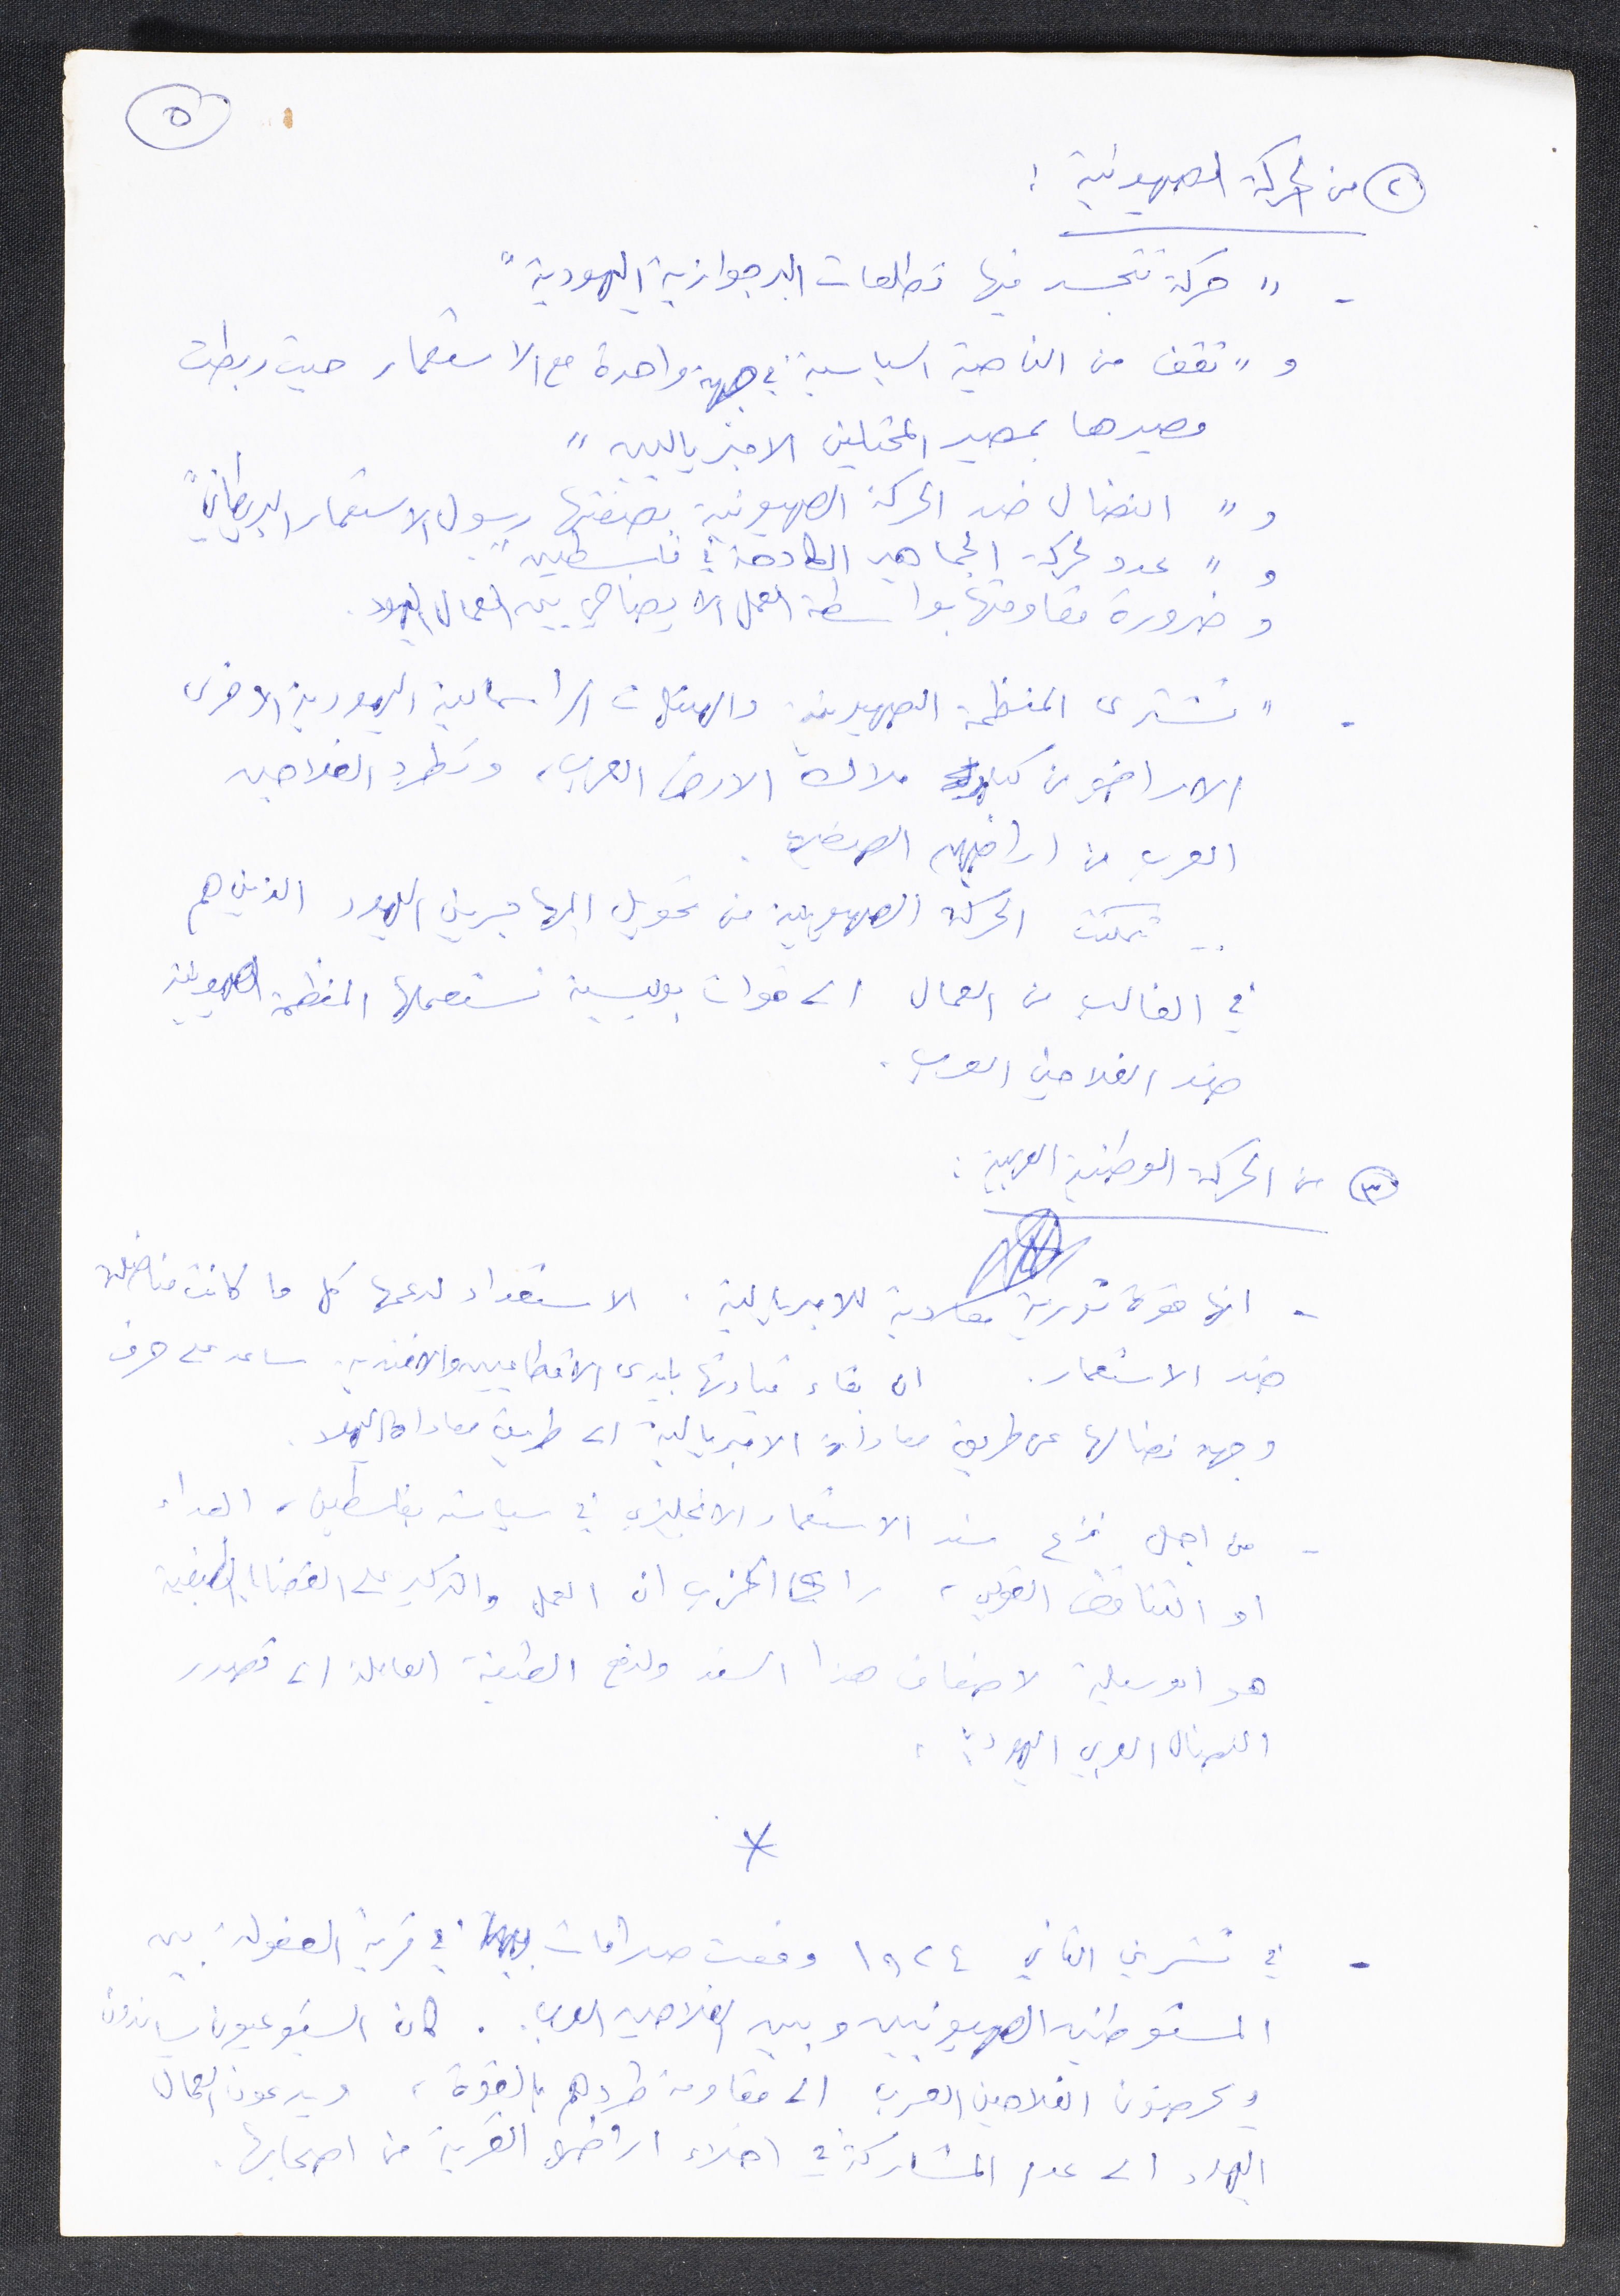 ٥
٢ من الحركة الصهيونية :
- " حركة تتجسد فيها تطلعات البرجوازية اليهودية "
و " تقف من الناحية السياسية في جبهة واحدة مع الاستعمار حيث ربطت
مصيرها بمصير المحتلين الامبرياليين "
و " النضال ضد الحركة الصهيونية بصفتها رسول الاستعمار البريطاني "
و " عدو لحركة الجماهير الكادحة في فلسطين " .
و ضرورة مقاومتها بواسطة العمل الايضاحي بين العمال اليهود .
- " تشتري المنظمة الصهيونية والهيئات الراسمالية اليهودية الاخرى
الاراضي من كبار ملاك الارض العرب ، وتطرد الفلاحين
العرب من اراضيهم
- تمكنت الحركة الصهيونية من تحويل المهاجرين اليهود الذين هم
في الغالب من العمال الى قوات بوليسية تستعملها المنظمة الصهيونية
ضد الفلاحين العرب .
٣ من الحركة الوطنية العربية :
- انها قوة ثورية معادية للامبريالية . الاستعداد لدعمها كل ما كانت مناضلة
ضد الاستعمار . ان بقاء قيادتها بايدي الاقطاعيين والافندية ساعد على حرف
وجهة نضالها عن طريق معاداة الامبريالية الى طريق معاداة اليهود .
- من اجل نزع سند الاستعمار الانجليزي في سياسته بفلسطين ، العداء
او التناقض القومي ، راى الحزب ان العمل والتركيز على القضايا الطبقية
هو الوسيلة لاضعاف هذا السند ولدفع الطبقة العاملة الى تصدر
النضال العربي اليهودي .
*
- في تشرين الثاني ١٩٢٤ وقعت صدامات في قرية العفولة بين
المستوطنين الصهيونيين وبين الفلاحين العرب . كان الشيوعيون يساندون
ويحرضون الفلاحين العرب الى مقاومة طردهم بالقوة ، ويدعون العمال
اليهود الى عدم المشاركة في اخلاء اراضي القرية من اصحابها .